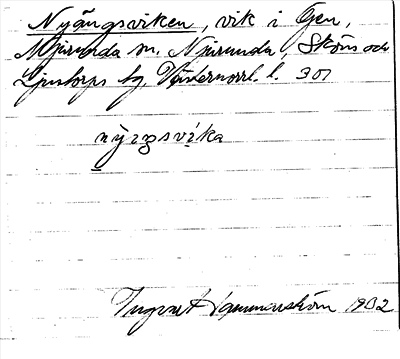 Nyängsviken, vik i Gen,
Njurunda sn. Njurunda Sköns och
Ljustorps tg. Västernorrl. l. 307
nyꞮŋsvika
Ingvar Hammarström 1932